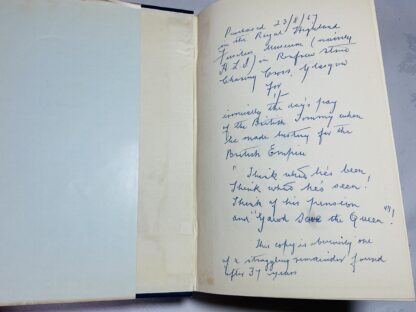 Purchased 23/8/67
in the Royal Highland
Fusiliers Museum (mainly
H.L.I.) in Renfrew Street
Charing Cross, Glasgow
for
1/-
ironically the day's pay
of the British Tommy when
he made history for the
British Empire
"Think what he's been,
Think what he's seen.
Think of his pension
and "Gawd Save the Queen"!
This copy is evidently one
of a straggling remainder found
after 37 years